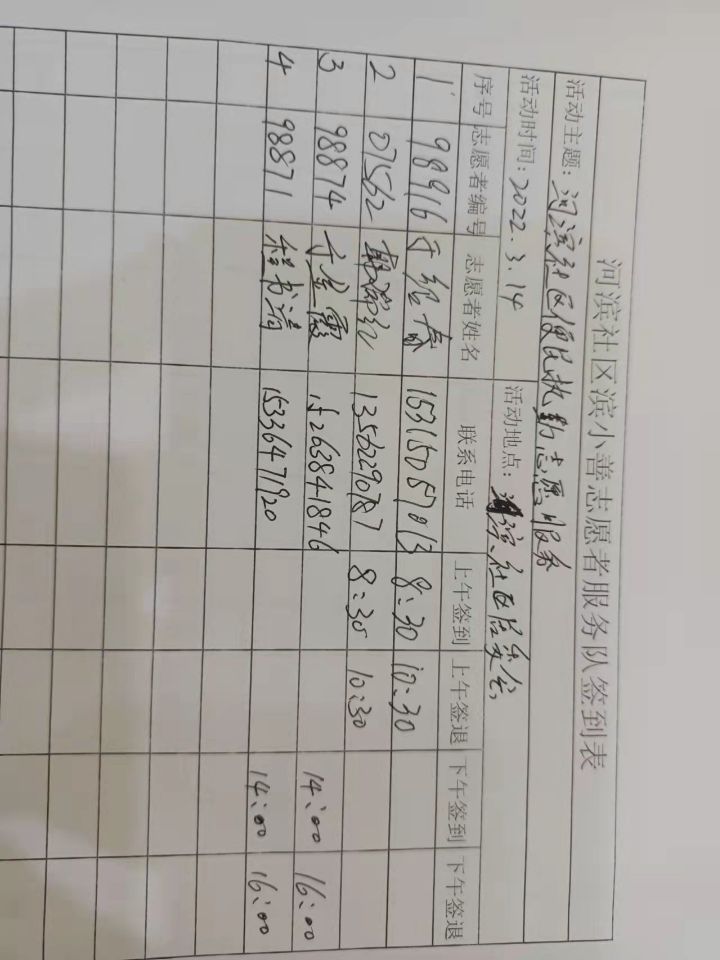 河滨社区滨小善志愿者服务队签到表
活动主题：河滨社区便民执勤志愿服务
活动时间：2022.3.14 活动地点：河滨社区居委会
序号 志愿者编号 志愿者姓名 联系电话 上午签到 上午签退 下午签到 下午签退
1 98916 8:30 10:30
2 07562 13562290787 8:30 10:30
3 98874 15263841846 14:00 16:00
4 98871 程书清 15336471920 14:00 16:00